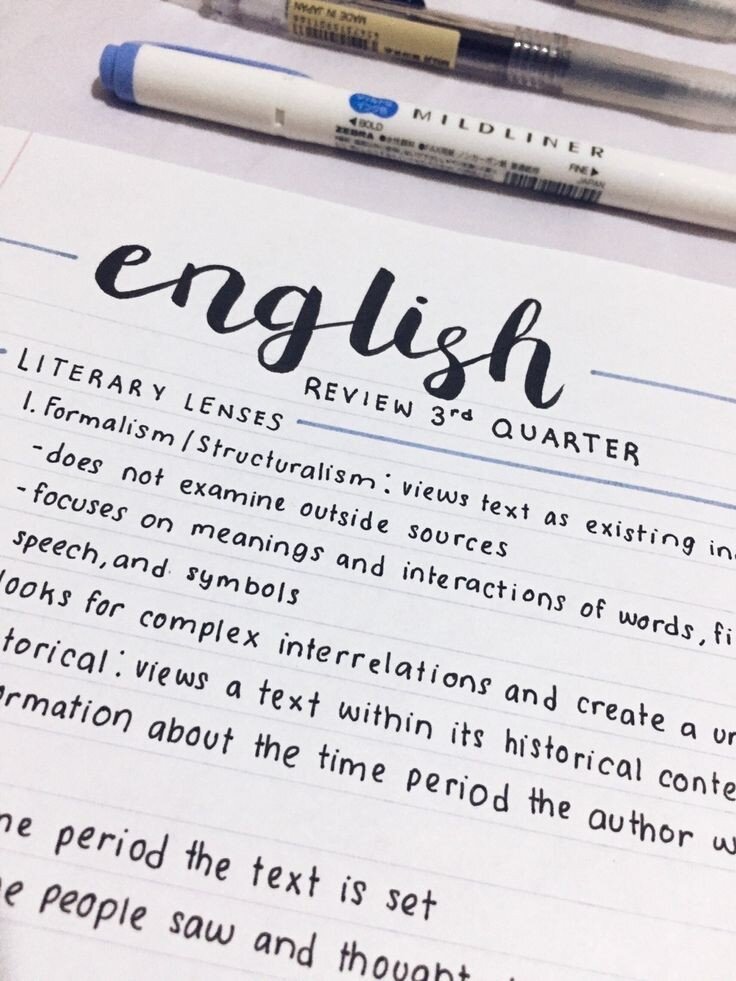 MADE IN JAPAN
MILDLINER
BOLD
ZEBRA
FINE
JAPAN
english
REVIEW 3rd QUARTER
LITERARY LENSES
1. Formalism/Structuralism: views text as existing
-does not examine outside sources
-focuses on meanings and interactions of words,
speech, and symbols
looks for complex interrelations and create a
views a text within its historical
about the time period the author
period the text is set
people saw and thought